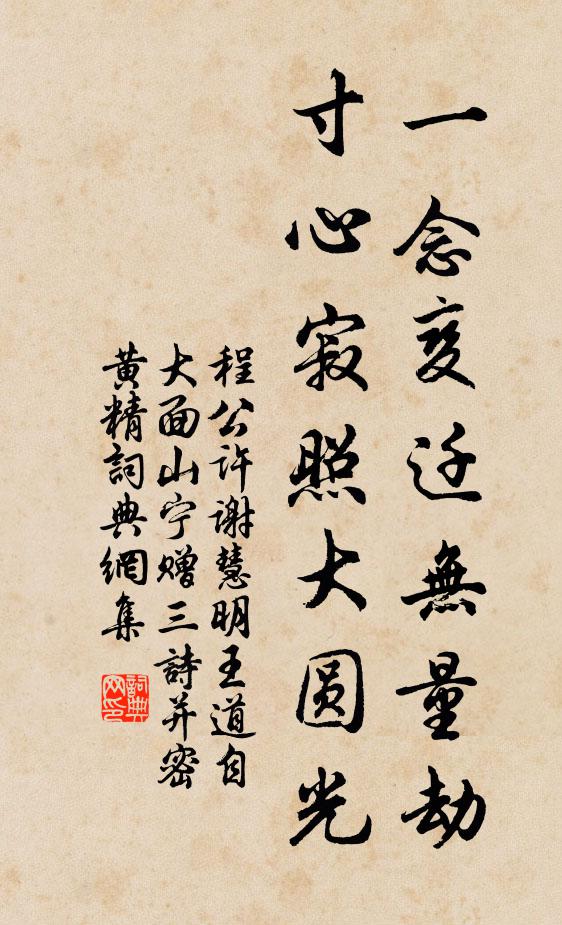 一念变迁無量劫
寸心寂照大圆光
程公许谢慧明王道自
大面山宁赠三詩并密
黄精詞典網集
詞典
网印